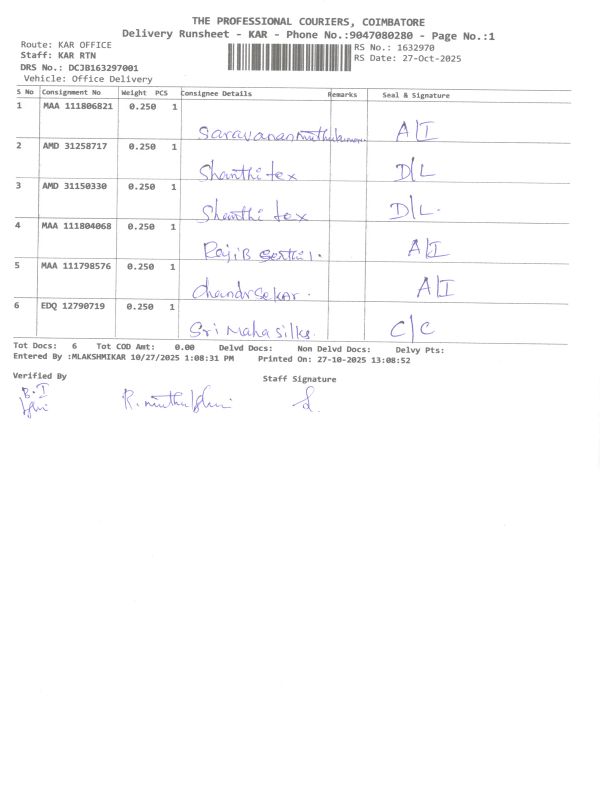 THE PROFESSIONAL COURIERS, COIMBATORE
Delivery Runsheet - KAR - Phone No.:9047080280 - Page No.:1
Route: KAR OFFICE
RS No.: 1632970
Staff: KAR RTN
RS Date: 27-Oct-2025
DRS No.: DCJB163297001
Vehicle: Office Delivery
S No Consignment No Weight PCS Consignee Details Remarks Seal & Signature
1 MAA 111806821 0.250 1
Saravanan muthukumar A/I
2 AMD 31258717 0.250 1
Shanthi tex D/L
3 AMD 31150330 0.250 1
Shanthi tex D/L.
4 MAA 111804068 0.250 1
RajiB Senthil. A/I
5 MAA 111798576 0.250 1
chandrsekar. A/I
6 EDQ 12790719 0.250 1
Sri Maha silks. C/C
Tot Docs: 6 Tot COD Amt: 0.00 Delvd Docs: Non Delvd Docs: Delvy Pts:
Entered By :MLAKSHMIKAR 10/27/2025 1:08:31 PM Printed On: 27-10-2025 13:08:52
Verified By
Staff Signature
B.I